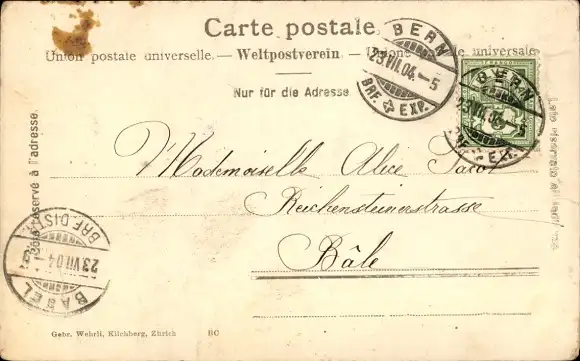 Carte postale.
Union postale universelle. — Weltpostverein — Unione postale universale
Nur für die Adresse
BERN
23.VII.04.–5
BRF. EXP.
BERN
23.VII.04.–5
EXP.
Côté réservé à l'adresse.
Mademoiselle Alice Jacot
Reichensteinerstrasse
Bâle
BRF. DIST.
23.VII.04
BASEL
Gebr. Wehrli, Kilchberg, Zürich 8C